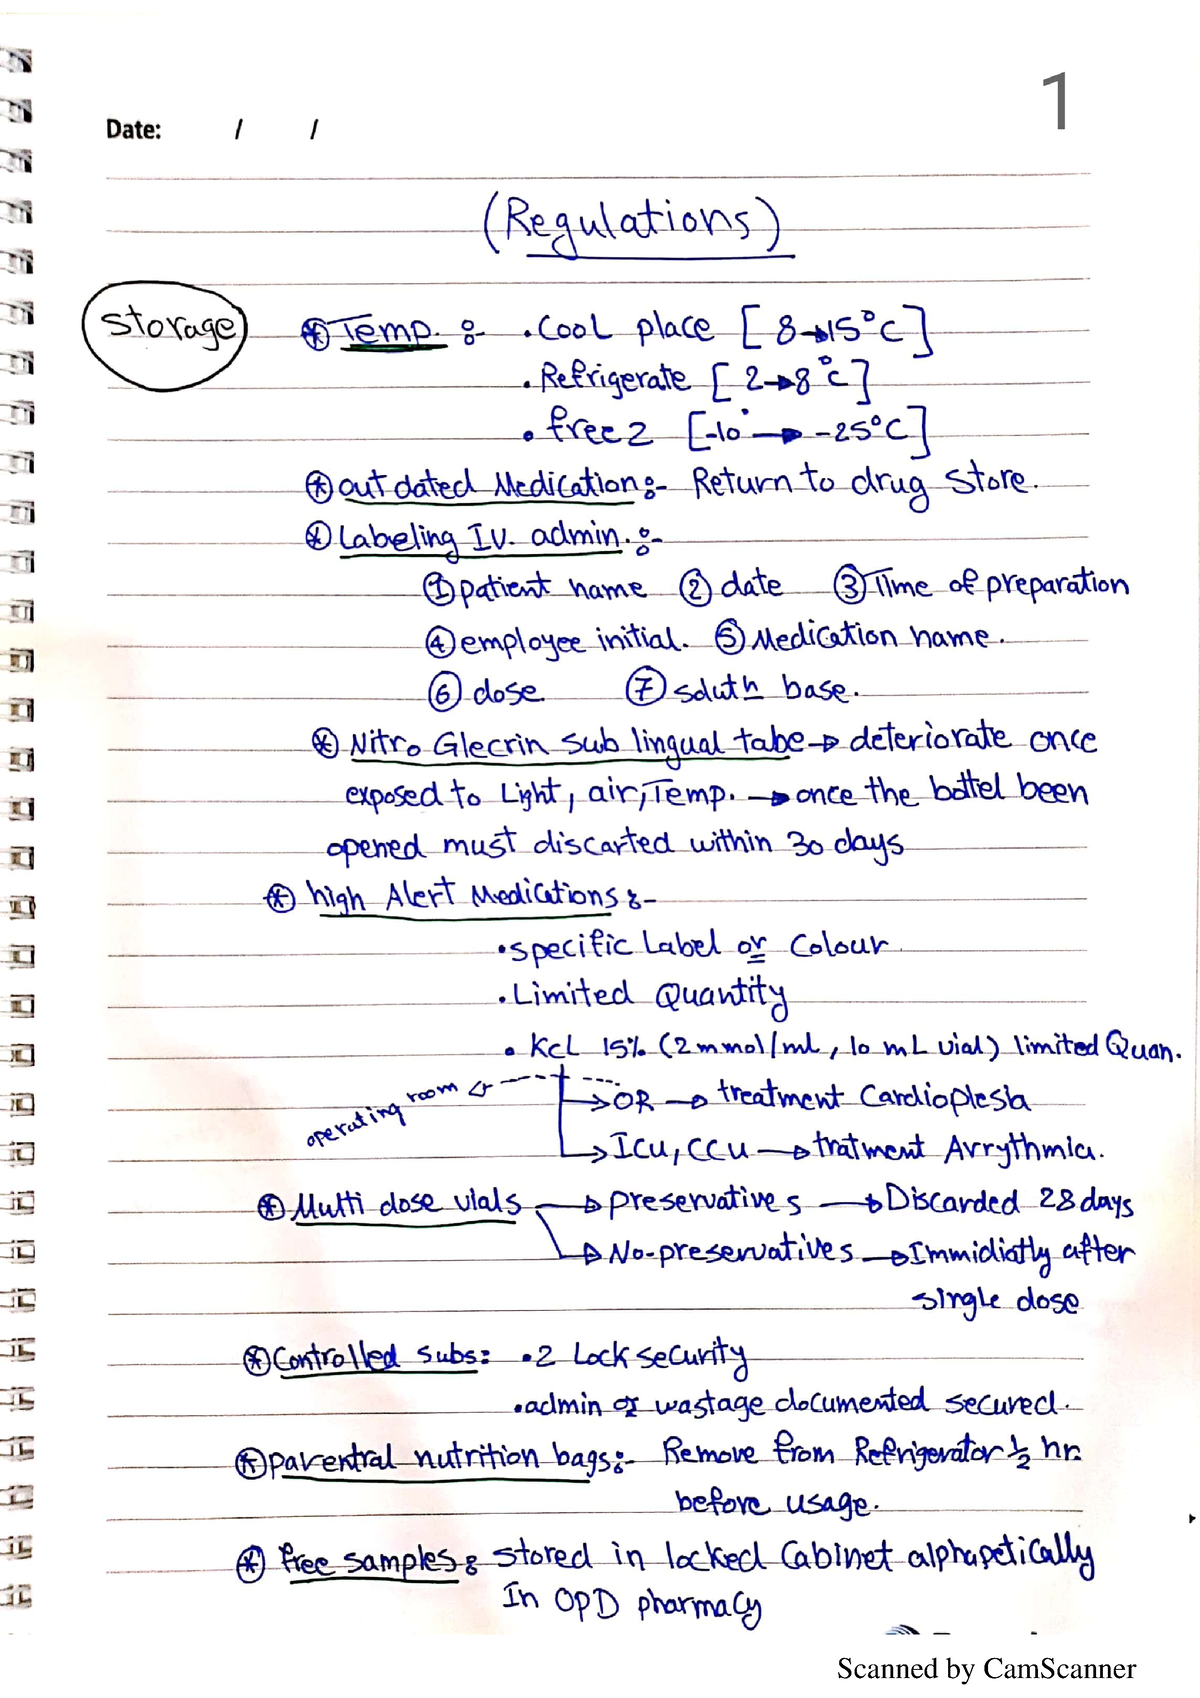 1
Date: / /
(Regulations)
Storage
⊛ Temp. :- • Cool place [8→15°C]
• Refrigerate [2→8°C]
• freez [-10° → -25°C]
⊛ outdated Medication:- Return to drug store.
⊛ Labeling I.V. admin. :-
① patient name ② date ③ Time of preparation
④ employee initial. ⑤ Medication name.
⑥ dose ⑦ base.
⊛ Nitro Glecrin sub lingual tabe → deteriorate once
exposed to Light, air, Temp. → once the bottel been
opened must discarted within 30 days
⊛ high Alert Medications :-
• specific Label or Colour
• Limited Quantity
• KCL 15% (2 mmol/ml, 10 mL vial) limited Quan.
operating room ← → OR → treatment Cardioplesia
→ ICU, CCU → tratment Arrythmia.
⊛ Multi dose vials → preservatives → Discarded 28 days
→ No-preservatives → Immidiatly after
single dose
⊛ Controlled subs: • 2 Lock security
• admin or wastage documented secured.
⊛ parentral nutrition bags:- Remove from Refrigerator ½ hr.
before usage.
⊛ free samples: stored in locked Cabinet alphapetically
In OPD pharmacy
Scanned by CamScanner